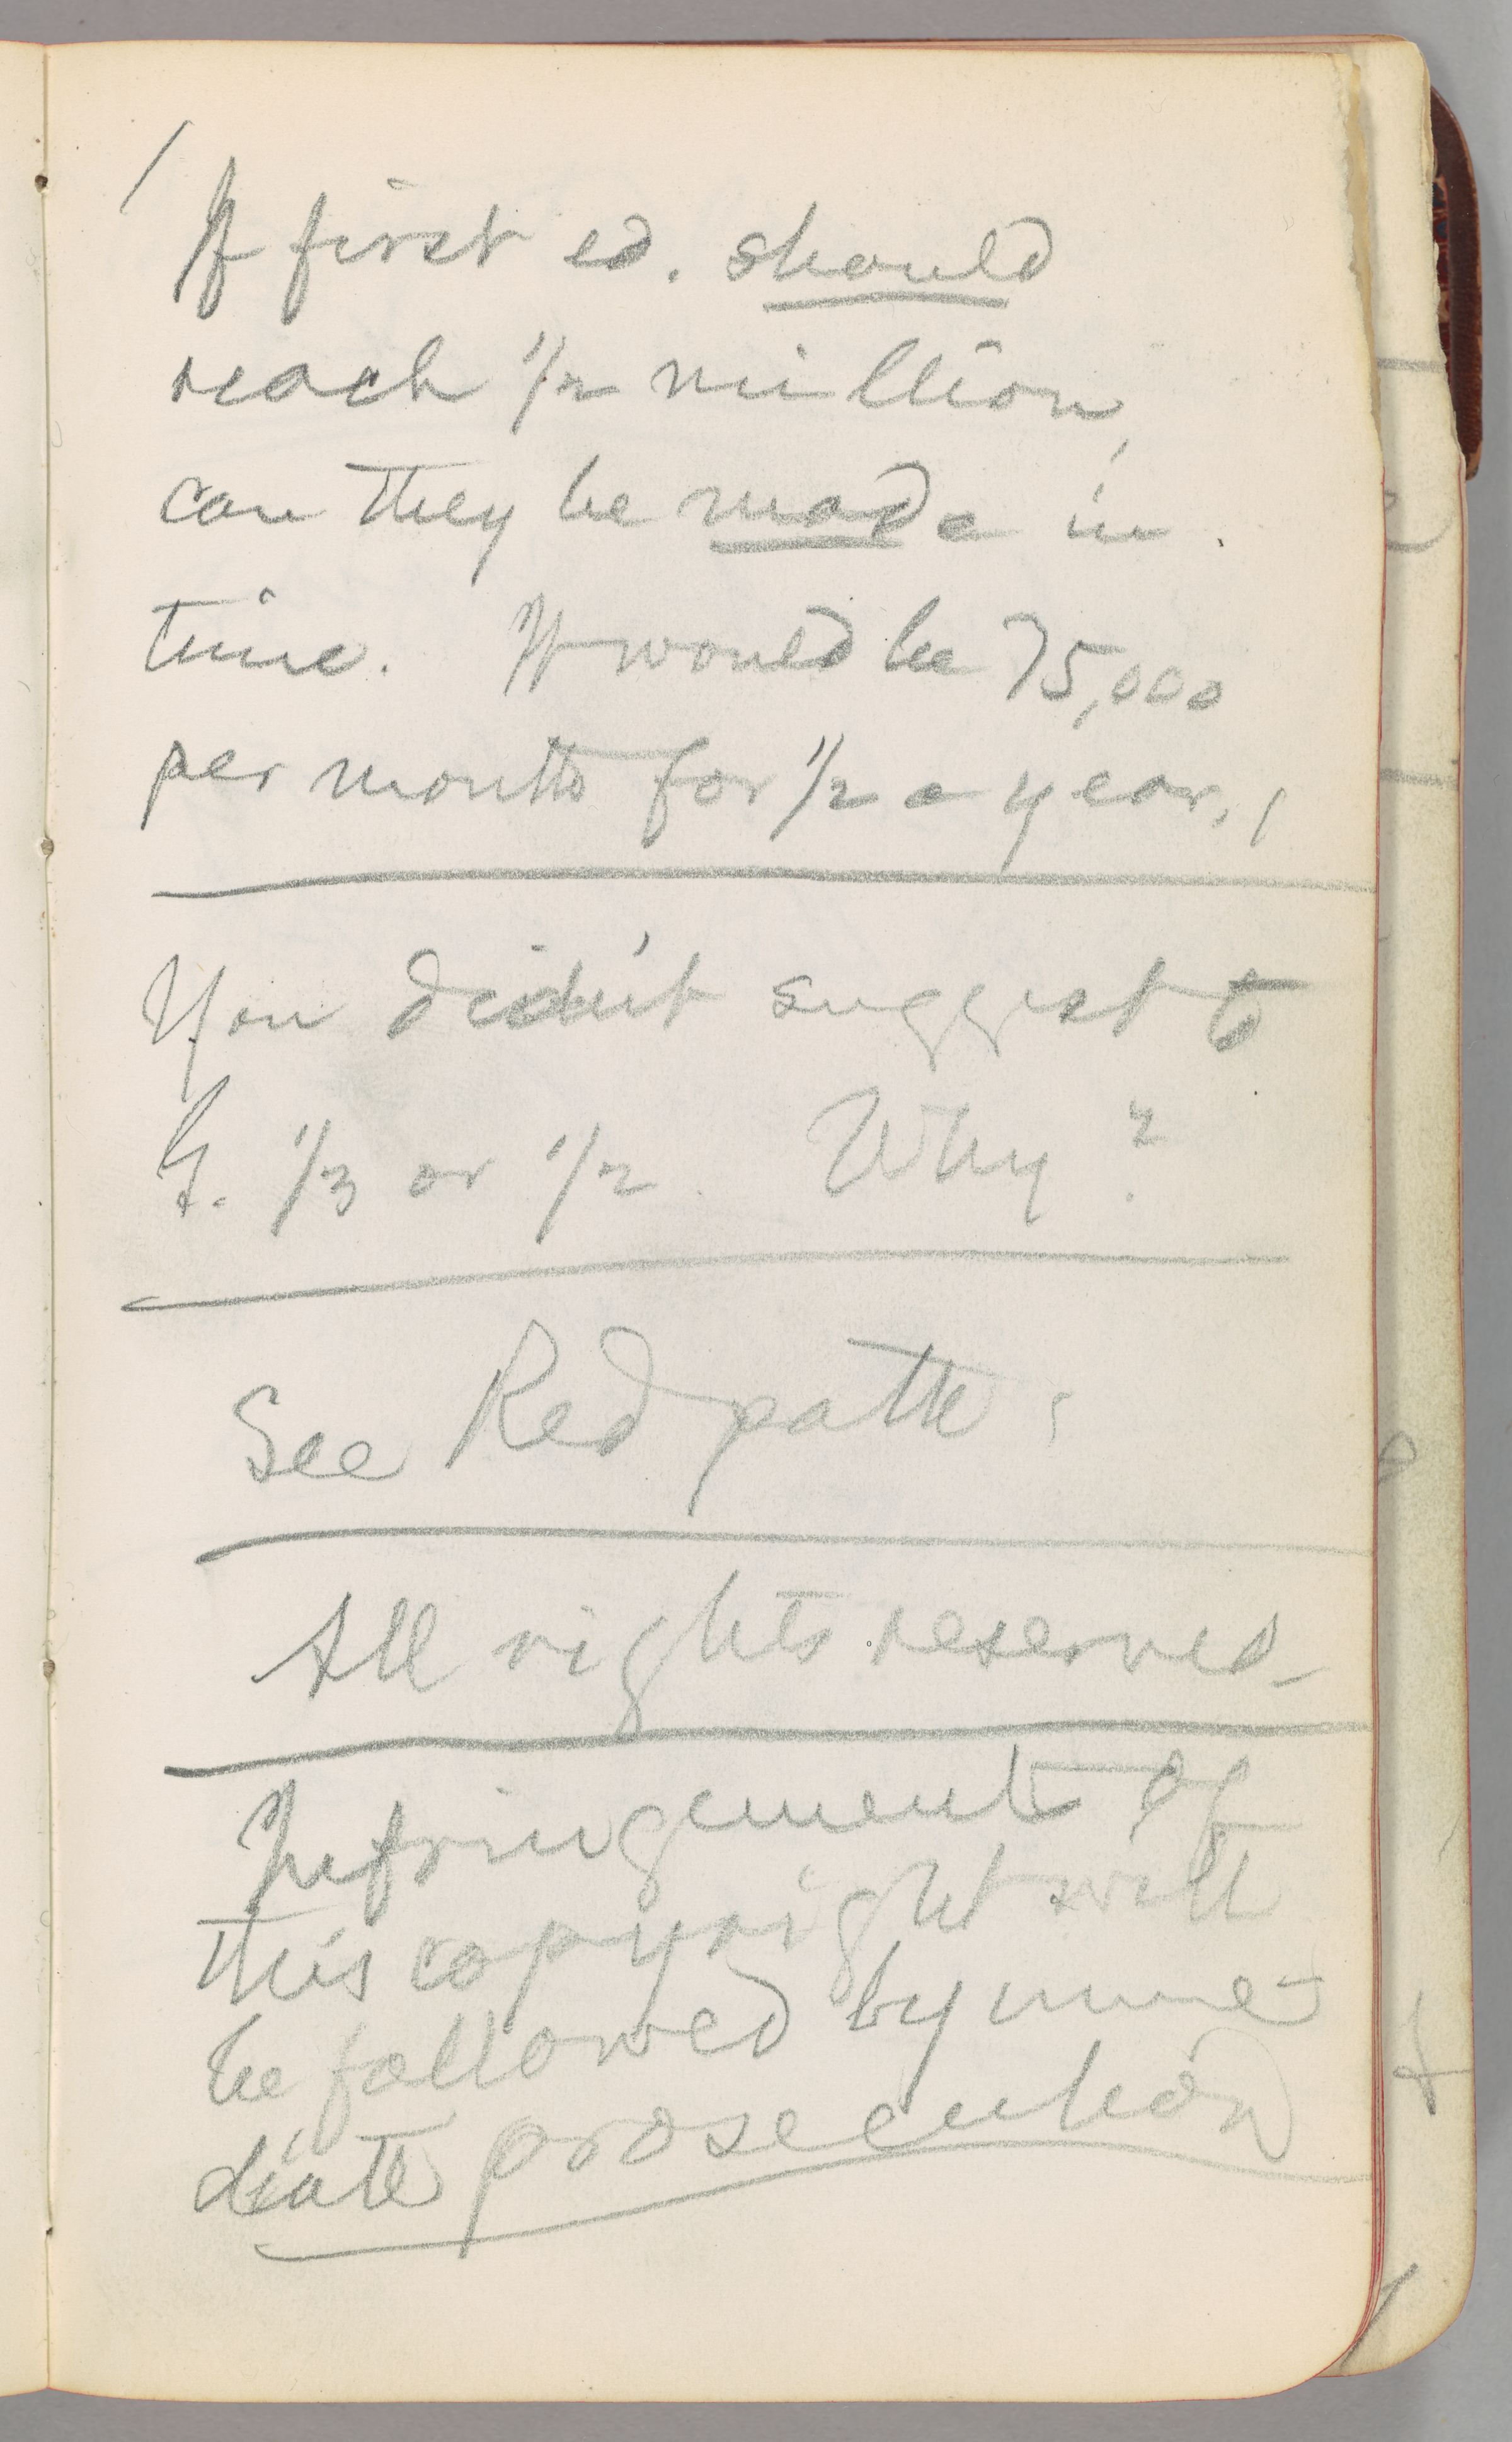 If first ed. should
reach 1/2 million,
can they be made in
time. It would be 75,000
per month for 1/2 a year.
You didn't suggest to
G. 1/3 or 1/2. Why?
See Redpath
All rights reserved
Infringement of
this copyright will
be followed by imme-
diate prosecution